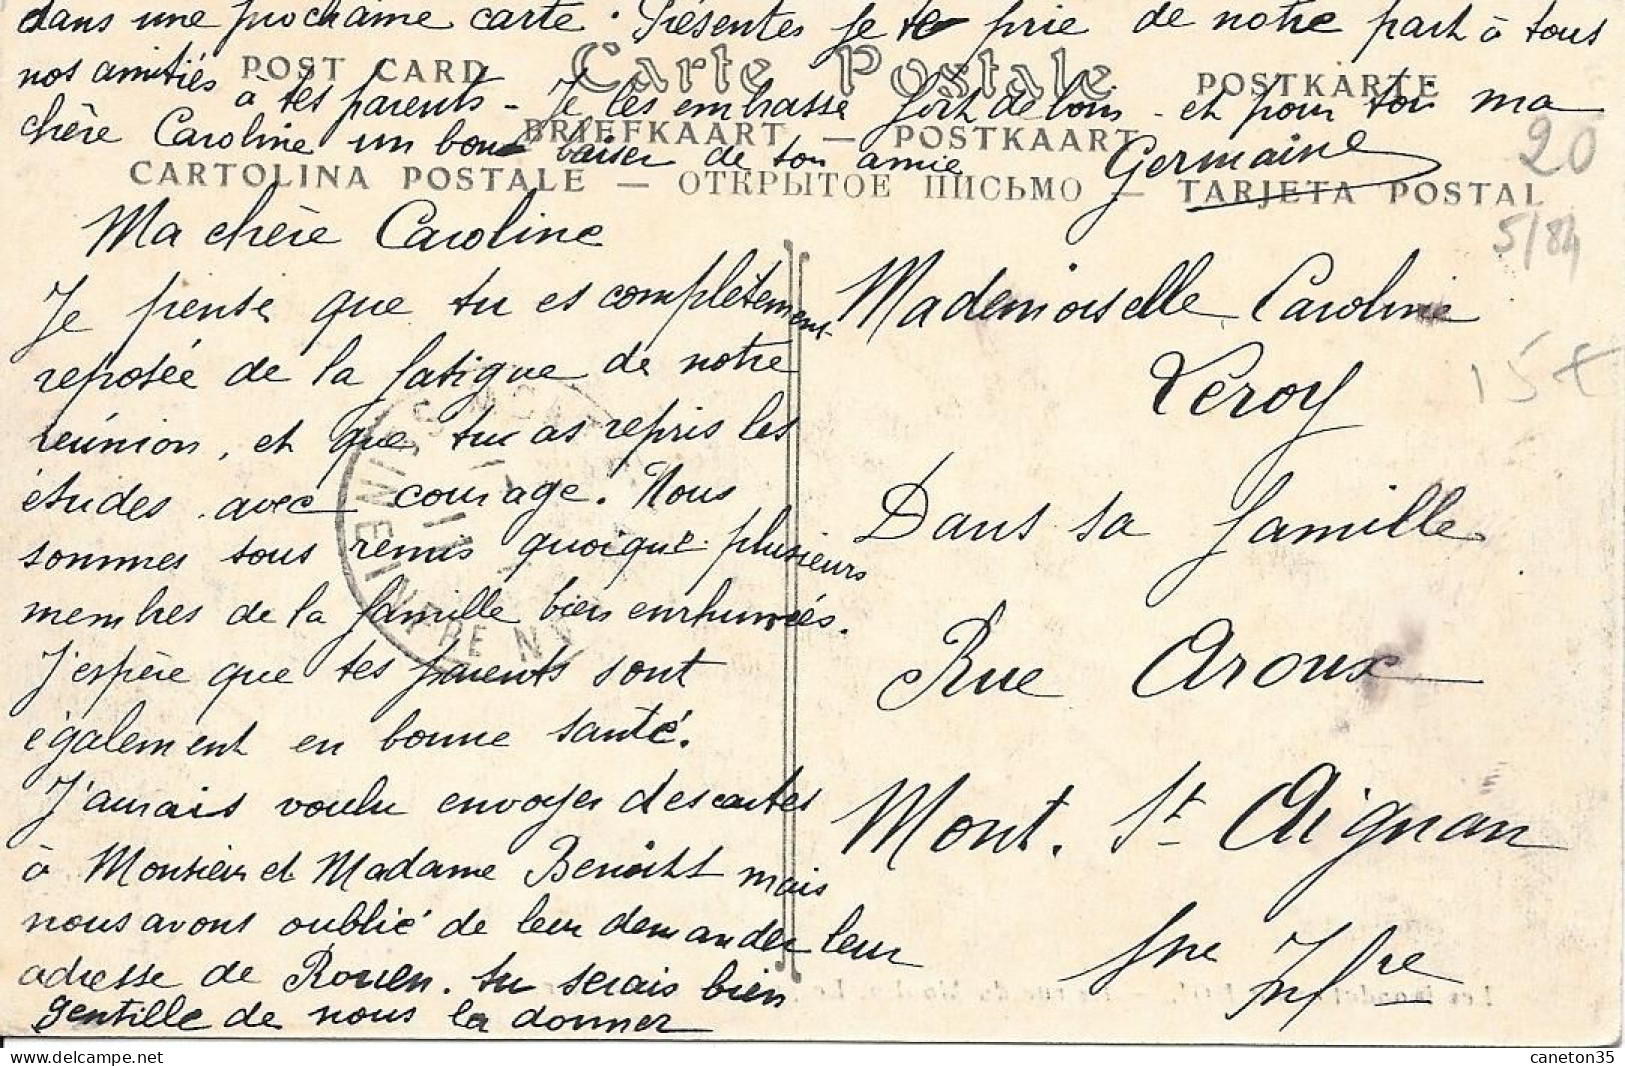 dans une prochaine carte. Présentes je te prie de notre part à tous
nos amitiés à tes parents - Je les embrasse fort de loin - et pour toi ma
chère Caroline un bon baiser de ton amie Germaine
POST CARD Carte Postale POSTKARTE
BRIEFKAART — POSTKAART
CARTOLINA POSTALE — ОТКРЫТОЕ ПИСЬМО — TARJETA POSTAL
20
5/84
15
Ma chère Caroline
Je pense que tu es complètement
reposée de la fatigue de notre
réunion, et que tu as repris les
études avec courage. Nous
sommes tous remis quoique plusieurs
membres de la famille bien enrhumés.
J'espère que tes parents sont
également en bonne santé.
J'aurais voulu envoyer des cartes
à Monsieur et Madame Benoist mais
nous avons oublié de leur demander leur
adresse de Rouen. tu serais bien
gentille de nous la donner
Mademoiselle Caroline
Leroy
Dans sa famille
Rue Aroux
Mont. St Aignan
Sne Infre
SEINE INFRE
caneton35